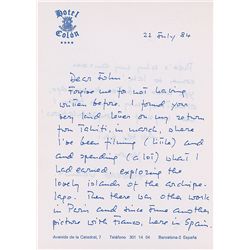 Hotel
Colón
22 July 84
Dear John -
Forgive me to not having
written before. I found your
very kind letter on my return
from Tahiti, in march, where
I've been filming (little) and
and spending (a lot) what I
had earned, exploring the
lovely islands of the archipe-
lago. Then there was other work
in Paris and since June another
picture with Franco, here in Spain
Avenida de la Catedral, 7 Teléfono 301 14 04 Barcelona-2 España